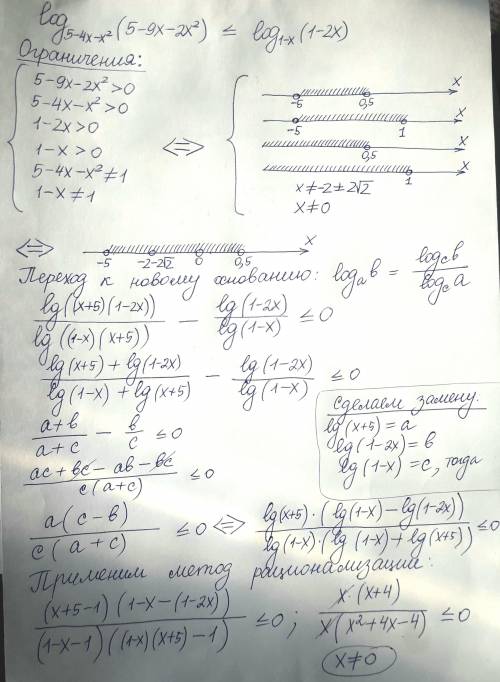 log₅₋₄ₓ₋ₓ²(5-9x-2x²) ≤ log₁₋ₓ(1-2x)
Ограничения:
5-9x-2x²>0
5-4x-x²>0
1-2x>0
1-x>0
5-4x-x²≠1
1-x≠1
⇔
-5 0,5 x
-5 1 x
0,5 x
1 x
x≠-2±2√2
x≠0
⇔ -5 -2-2√2 0 0,5 x
Переход к новому основанию: logₐb = log_c b / log_c a
lg((x+5)(1-2x)) / lg((1-x)(x+5)) - lg(1-2x) / lg(1-x) ≤ 0
(lg(x+5)+lg(1-2x)) / (lg(1-x)+lg(x+5)) - lg(1-2x) / lg(1-x) ≤ 0
Сделаем замену:
lg(x+5)=a
lg(1-2x)=b
lg(1-x)=c, тогда
(a+b)/(a+c) - b/c ≤ 0
(ac+bc-ab-bc) / c(a+c) ≤ 0
a(c-b) / c(a+c) ≤ 0 ⇔ lg(x+5)·(lg(1-x)-lg(1-2x)) / lg(1-x)·(lg(1-x)+lg(x+5)) ≤ 0
Применим метод рационализации:
(x+5-1)(1-x-(1-2x)) / (1-x-1)((1-x)(x+5)-1) ≤ 0; x·(x+4) / x(x²+4x-4) ≤ 0
x≠0